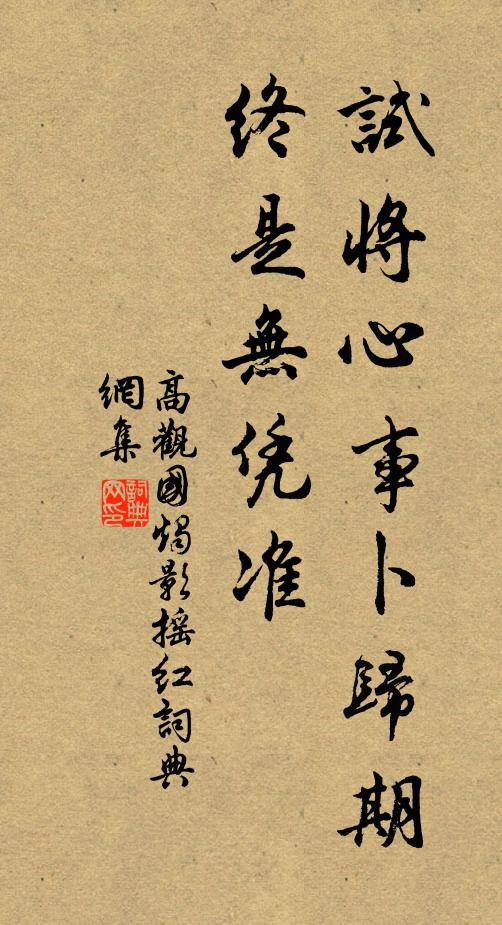 試將心事卜歸期
終是無凭准
高觀國燭影摇红詞典
網集
詞典
网印